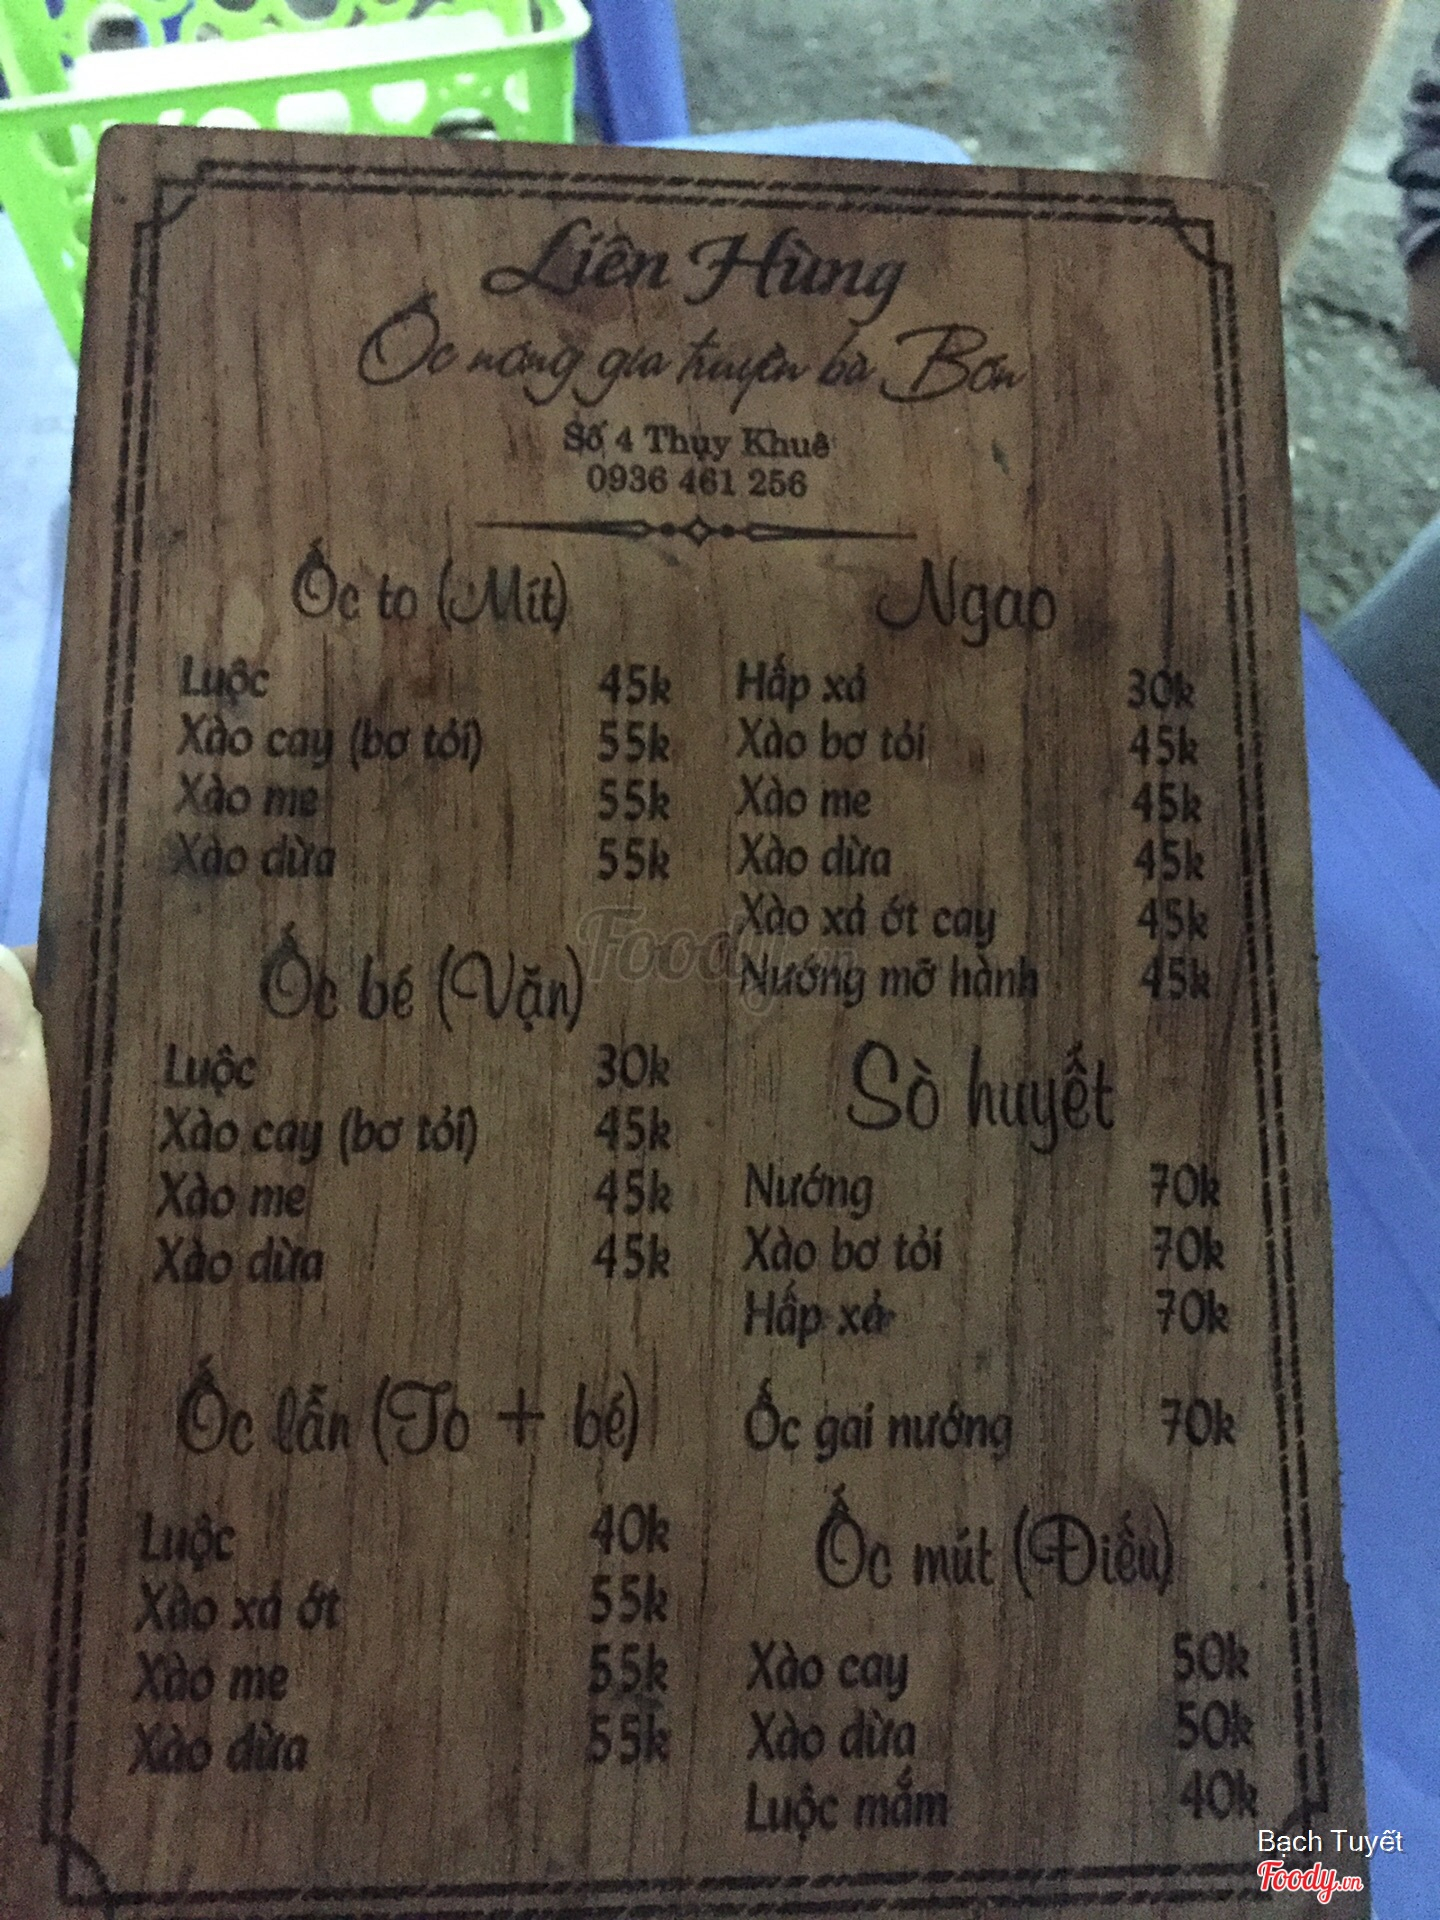 Liên Hùng
Ốc nóng gia truyền bà Bốn
Số 4 Thụy Khuê
0936 461 256
Ốc to (Mít)
Luộc 45k
Xào cay (bơ tỏi) 55k
Xào me 55k
Xào dừa 55k
Ốc bé (Vặn)
Luộc 30k
Xào cay (bơ tỏi) 45k
Xào me 45k
Xào dừa 45k
Ốc lẫn (To + bé)
Luộc 40k
Xào xả ớt 55k
Xào me 55k
Xào dừa 55k
Ngao
Hấp xả 30k
Xào bơ tỏi 45k
Xào me 45k
Xào dừa 45k
Xào xả ớt cay 45k
Nướng mỡ hành 45k
Sò huyết
Nướng 70k
Xào bơ tỏi 70k
Hấp xả 70k
Ốc gai nướng 70k
Ốc mút (Điếu)
Xào cay 50k
Xào dừa 50k
Luộc mắm 40k
Foody.vn
Bạch Tuyết
Foody.vn